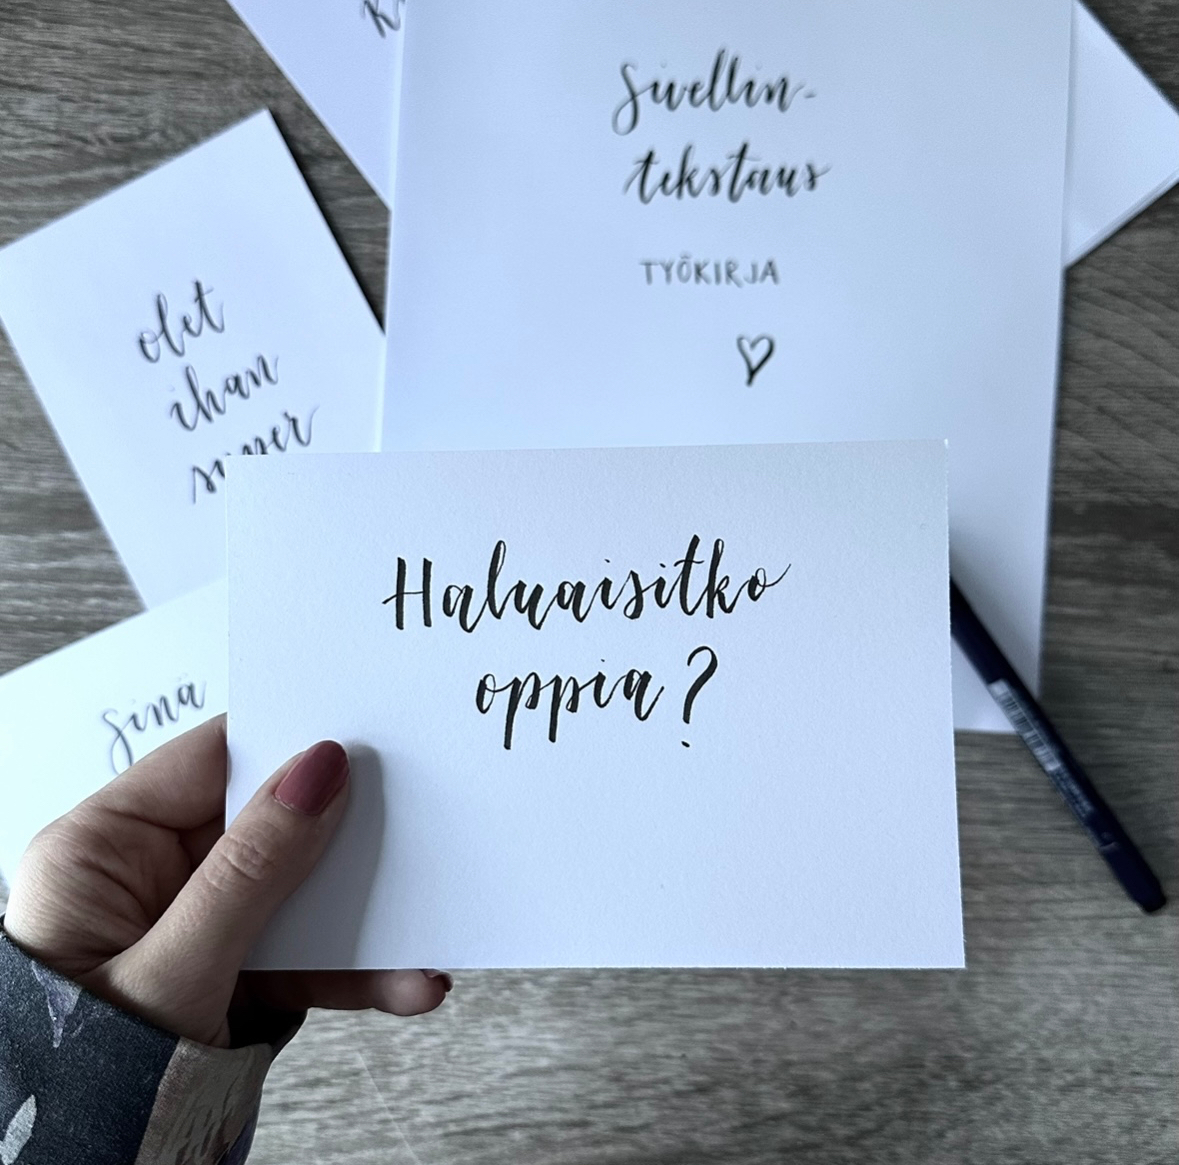 Sivellin-
tekstaus
TYÖKIRJA
olet
ihan
super
sinä
Haluaisitko
oppia?